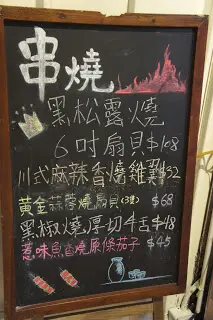 串燒
黑松露燒
6吋扇貝$108
川式麻蒜香燒雞翼$32
黃金蒜蓉燒扇貝(3隻) $68
黑椒燒厚切牛舌$48
惹味魚香燒原條茄子 $45